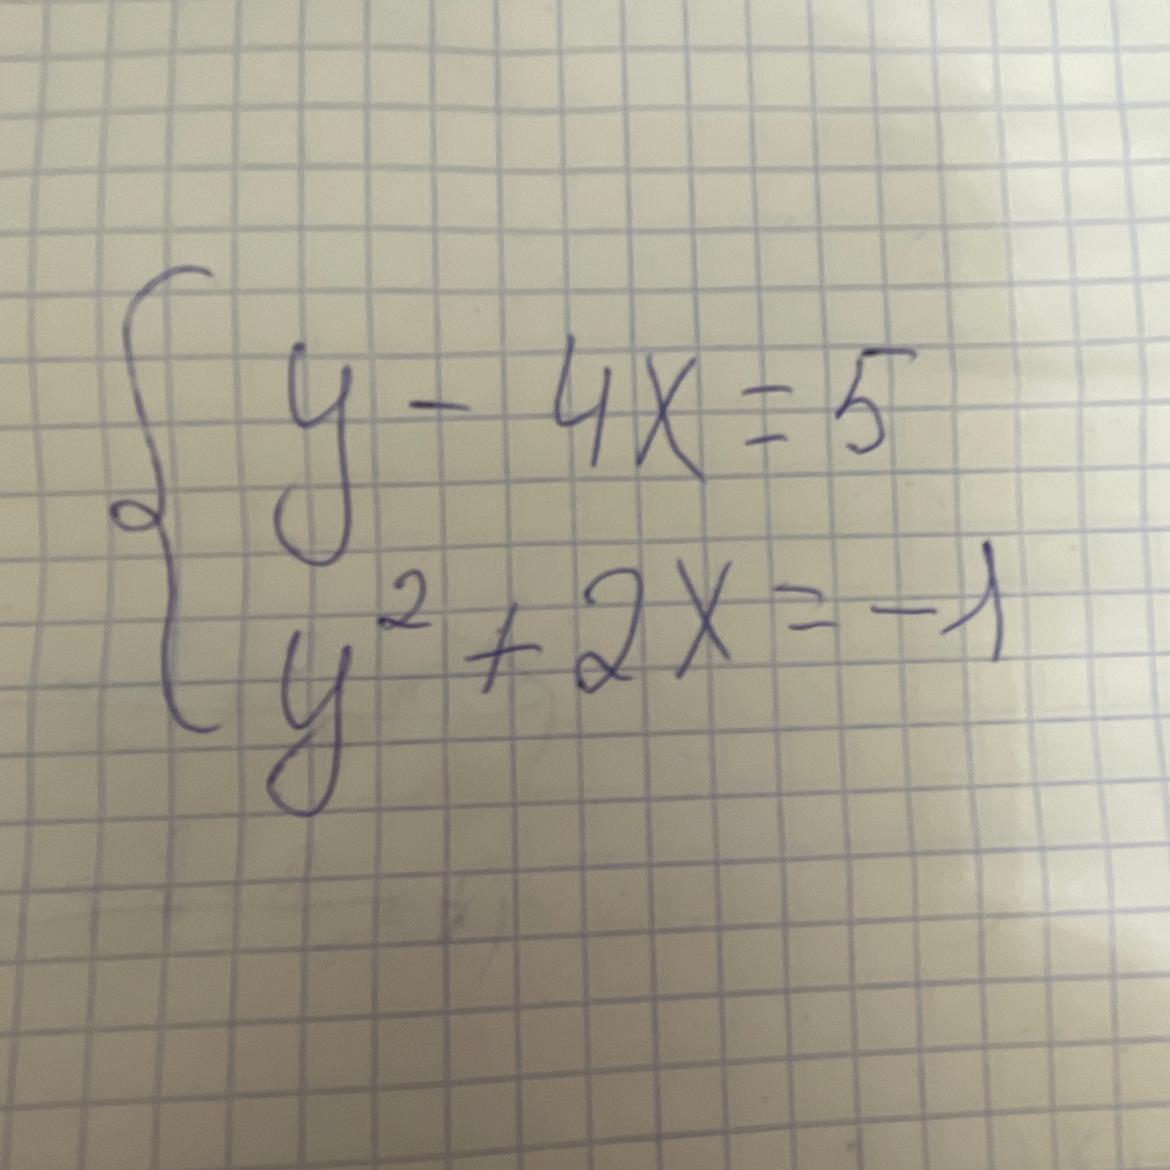 y - 4x = 5
y² + 2x = -1